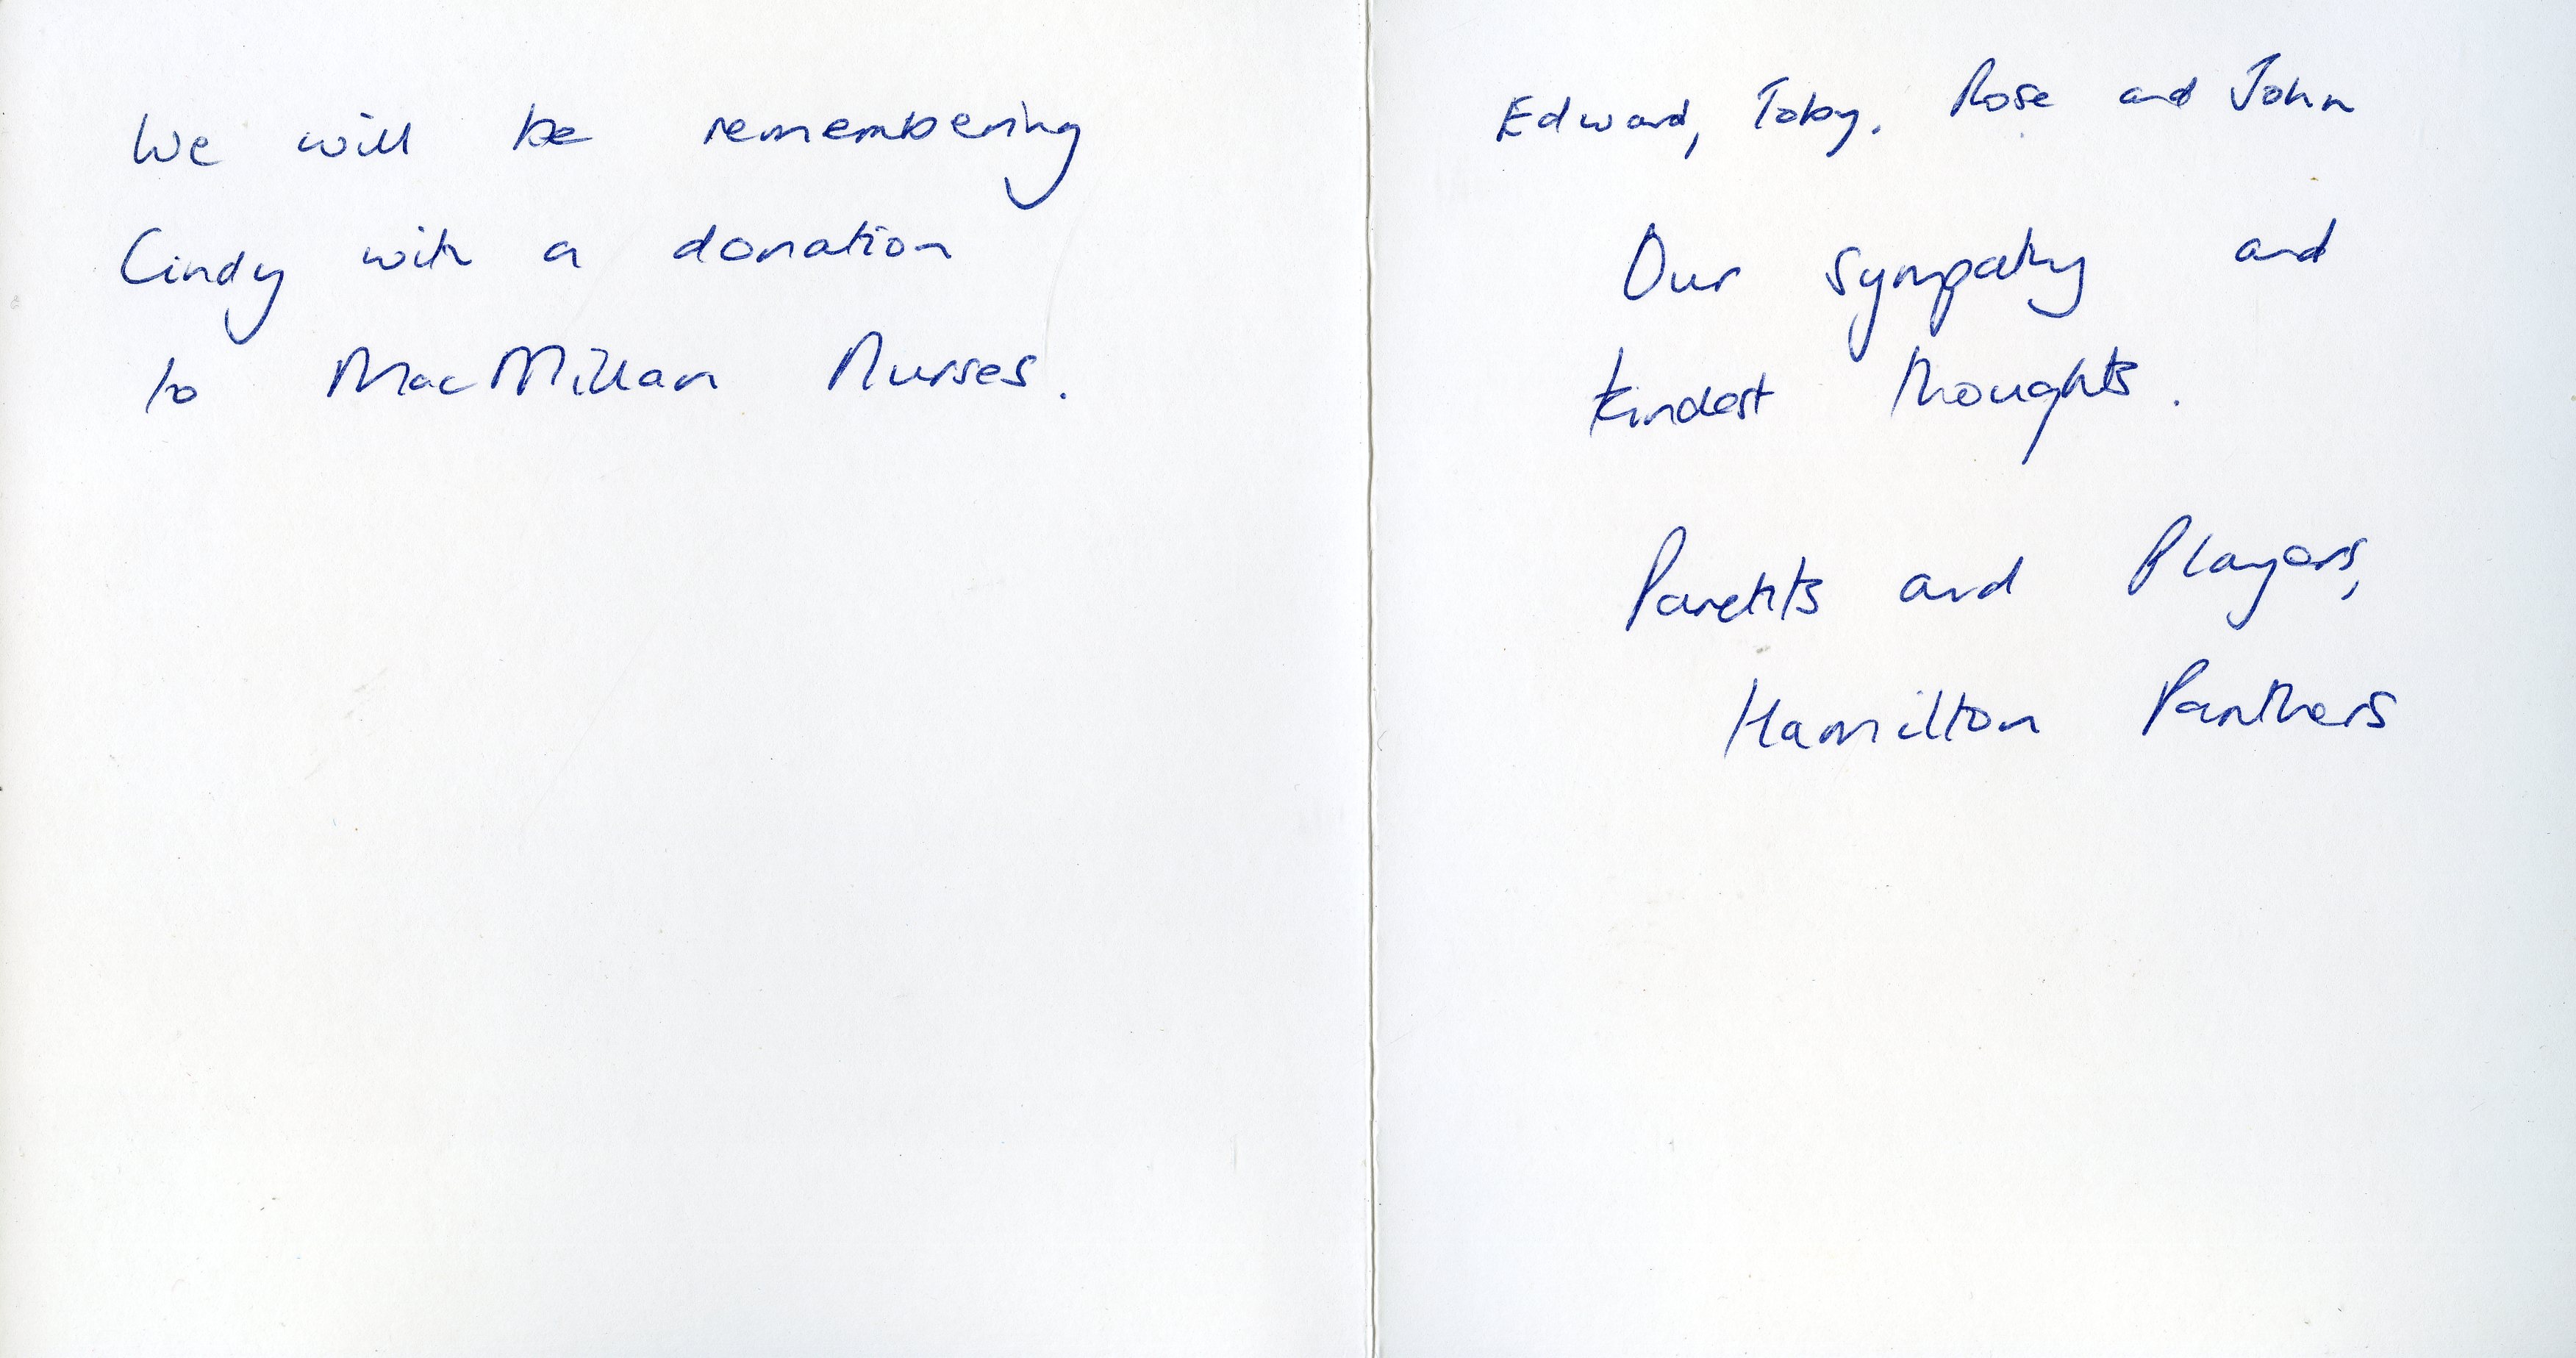 We will be remembering
Cindy with a donation
to MacMillan Nurses.
Edward, Toby, Rose and John
Our sympathy and
kindest thoughts.
Parents and Players,
Hamilton Panthers